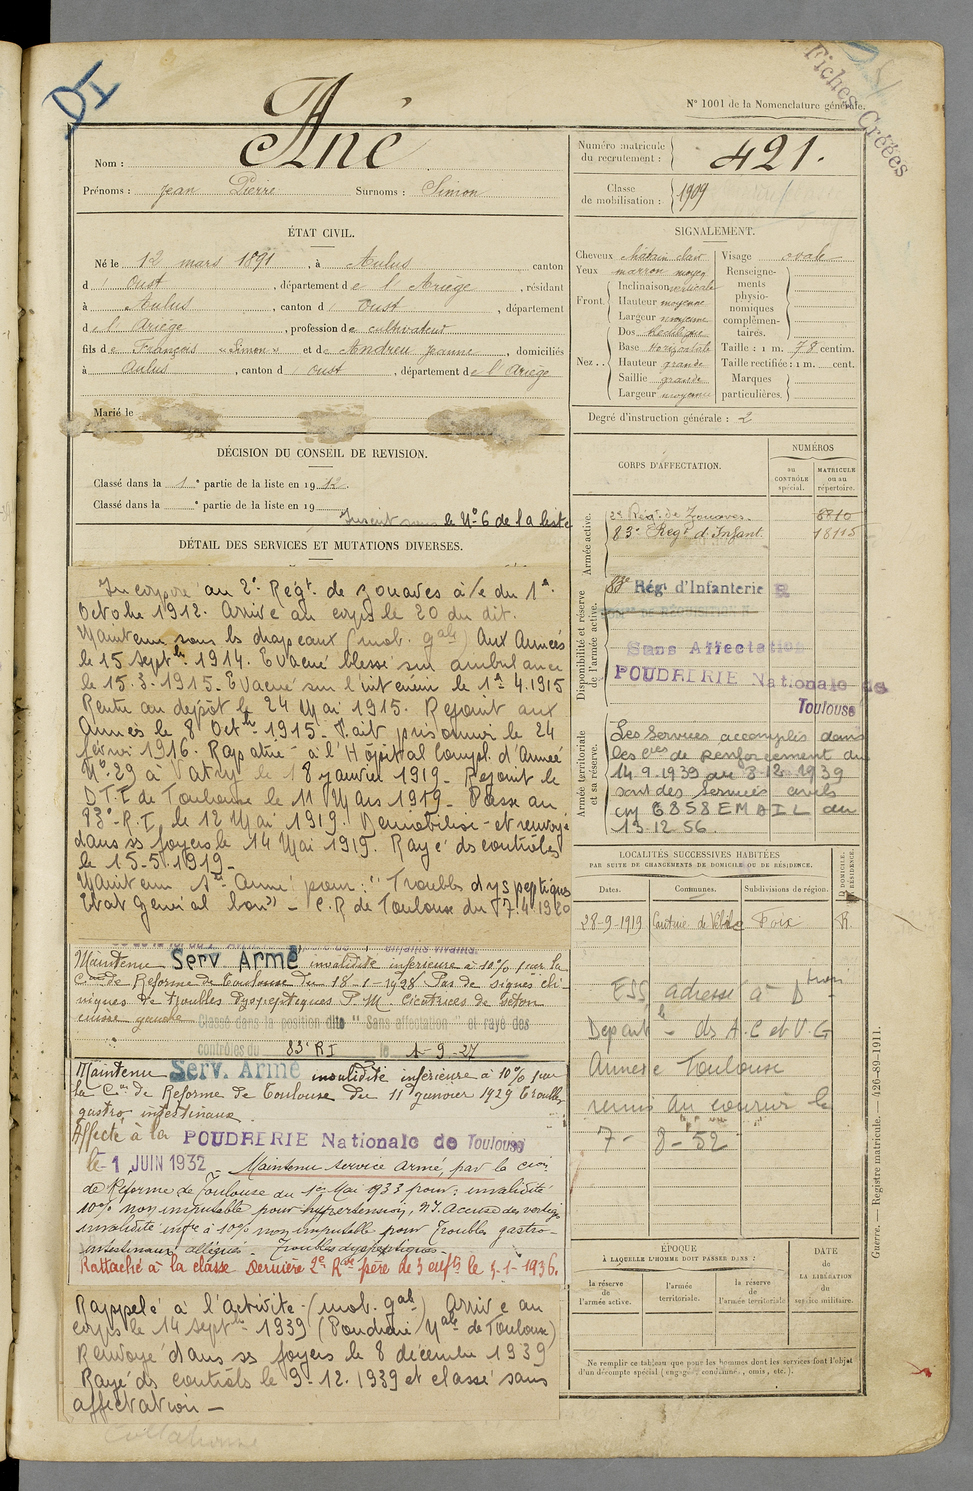 DI
Fiches Créées
N° 1001 de la Nomenclature générale.
Nom : Ané
Prénoms : Jean Pierre Surnoms : Simon
Numéro matricule du recrutement : 421.
Classe de mobilisation : 1909
ÉTAT CIVIL.
Né le 12 mars 1891, à Aulus canton
d' Oust, département de l'Ariège, résidant
à Aulus, canton d' Oust, département
de l'Ariège, profession de cultivateur
fils de François "Simon" et de Andreu Jeanne, domiciliés
à Aulus, canton d' Oust, département de l'Ariège
Marié le
SIGNALEMENT.
Cheveux châtain clair
Yeux marron moyen
Front. Inclinaison verticale
Hauteur moyenne
Largeur moyenne
Nez . . Dos rectiligne
Base horizontale
Hauteur grande
Saillie grande
Largeur moyenne
Visage ovale
Renseignements physionomiques complémentaires.
Taille : 1 m. 78 centim.
Taille rectifiée : 1 m. cent.
Marques particulières.
Degré d'instruction générale : 2
DÉCISION DU CONSEIL DE REVISION.
Classé dans la 1e partie de la liste en 1912.
Classé dans la e partie de la liste en 19
Inscrit sous le N° 6 de la liste
DÉTAIL DES SERVICES ET MUTATIONS DIVERSES.
Incorporé au 2e Régt de zouaves à/c du 1er
Octobre 1912. Arrivé au corps le 20 du dit.
Maintenu sous les drapeaux (mob. gale) Aux Armées
le 15 septbre 1914. Evacué blessé sur ambulance
le 15.3.1915. Evacué sur l'intérieur le 1er 4.1915
Rentré au dépôt le 24 Mai 1915. Rejoint aux
Armées le 8 Octbre 1915. Fait prisonnier le 24
février 1916. Rapatrié à l'Hôpital Compl. d'Armée
N° 29 à Vatry le 18 janvier 1919. Rejoint le
D.T.I. de Toulouse le 11 Mars 1919. Passé au
83e R.I. le 12 Mai 1919. Démobilisé et renvoyé
dans ss foyers le 14 Mai 1919. Rayé ds contrôles
le 15-5-1919.
Maintenu Sce Armé pour : "Troubles dyspeptiques
Etat général bon" - C.R de Toulouse du 17.4.1920
enfants vivants.
Maintenu Serv. Armé invalidité inférieure à 10% par la
Con de Réforme de Toulouse du 18-1-1928 Pas de signes cli
niques de troubles dyspeptiques P.M. Cicatrices de séton
cuisse gauche Classé dans la position dite "Sans affectation" et rayé des
contrôles du 83e RI le 1-9-27
Maintenu Serv. Armé invalidité inférieure à 10% par
la Con de Réforme de Toulouse du 11 janvier 1929 Troubles
gastro intestinaux
Affecté à la POUDRERIE Nationale de Toulouse
le 1 JUIN 1932 - Maintenu service armé, par la Con
de Réforme de Toulouse du 1er Mai 1933 pour : invalidité
10% non imputable pour hypertension, N.I. Accuse des vertiges
invalidité infre à 10% non imputable pour Troubles gastro-
intestinaux allégués. Troubles dyspeptiques.
Rattaché à la classe Dernière 2e Rve père de 3 enfts le 5-1-1936.
Rappelé à l'activité (mob. gale) Arrivé au
corps le 14 septbre 1939 (Poudrerie Nale de Toulouse)
Renvoyé dans ss foyers le 8 décembre 1939
Rayé ds contrôles le 9.12.1939 et classé sans
affectation -
CORPS D'AFFECTATION.
NUMÉROS
au CONTRÔLE spécial.
MATRICULE ou au répertoire.
Armée active.
2e Régt de Zouaves. 8710
83e Régt d'Infant. 18115
Disponibilité et réserve de l'armée active.
83e Rég. d'Infanterie R
Sans Affectation
POUDRERIE Nationale de
Toulouse
Armée territoriale et sa réserve.
Les Services accomplis dans
les Cies de Renforcement du
14.9.1939 au 8.12.1939
sont des services civils
CM 6858 EMA/L du
13.12.56.
LOCALITÉS SUCCESSIVES HABITÉES
PAR SUITE DE CHANGEMENTS DE DOMICILE OU DE RÉSIDENCE.
Dates. Communes. Subdivisions de région.
D DOMICILE. R RÉSIDENCE.
28-9-1919 Foix R.
ESS adressé à Dtion
Départle ds A.C et V.G
Armée Toulouse
remis au courrier le
7-8-52
ÉPOQUE
À LAQUELLE L'HOMME DOIT PASSER DANS :
la réserve de l'armée active.
l'armée territoriale.
la réserve de l'armée territoriale
DATE DE LA LIBÉRATION du service militaire.
Ne remplir ce tableau que pour les hommes dont les services font l'objet
d'un décompte spécial (engagé, condamné, omis, etc.).
Guerre. — Registre matricule. — 426-89-1911.